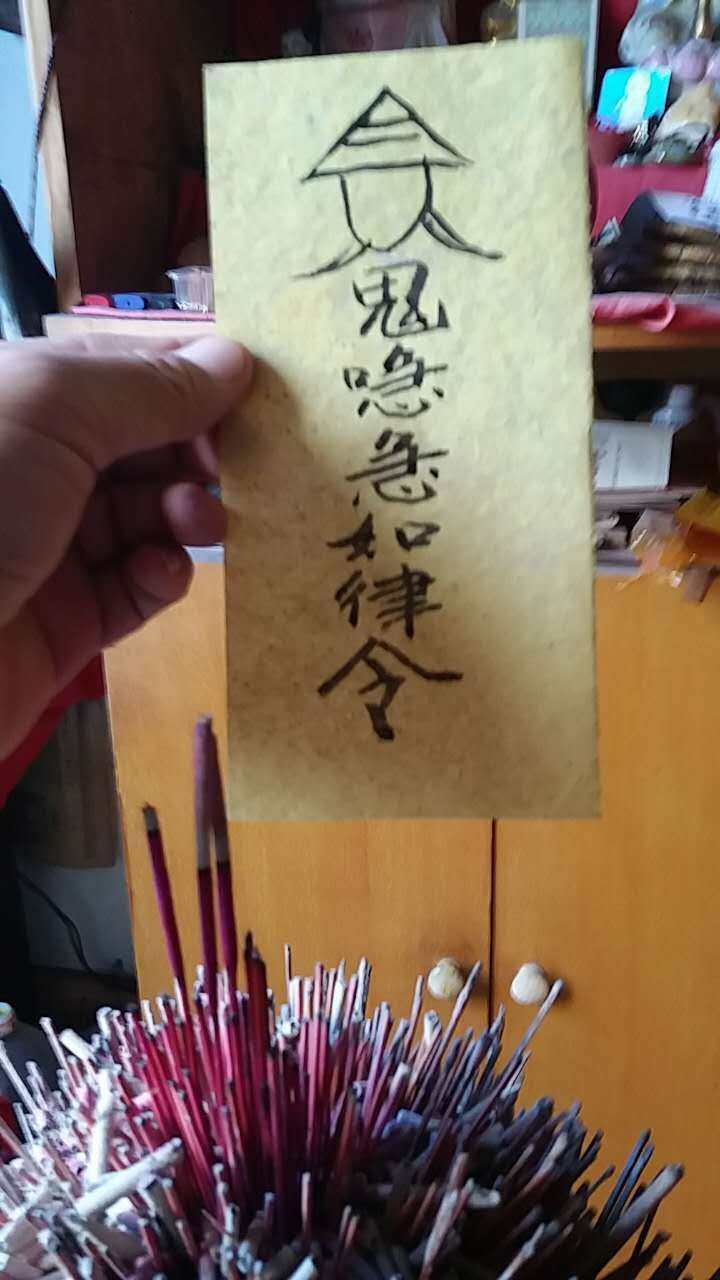 鬼
㗋
急
如
律
令